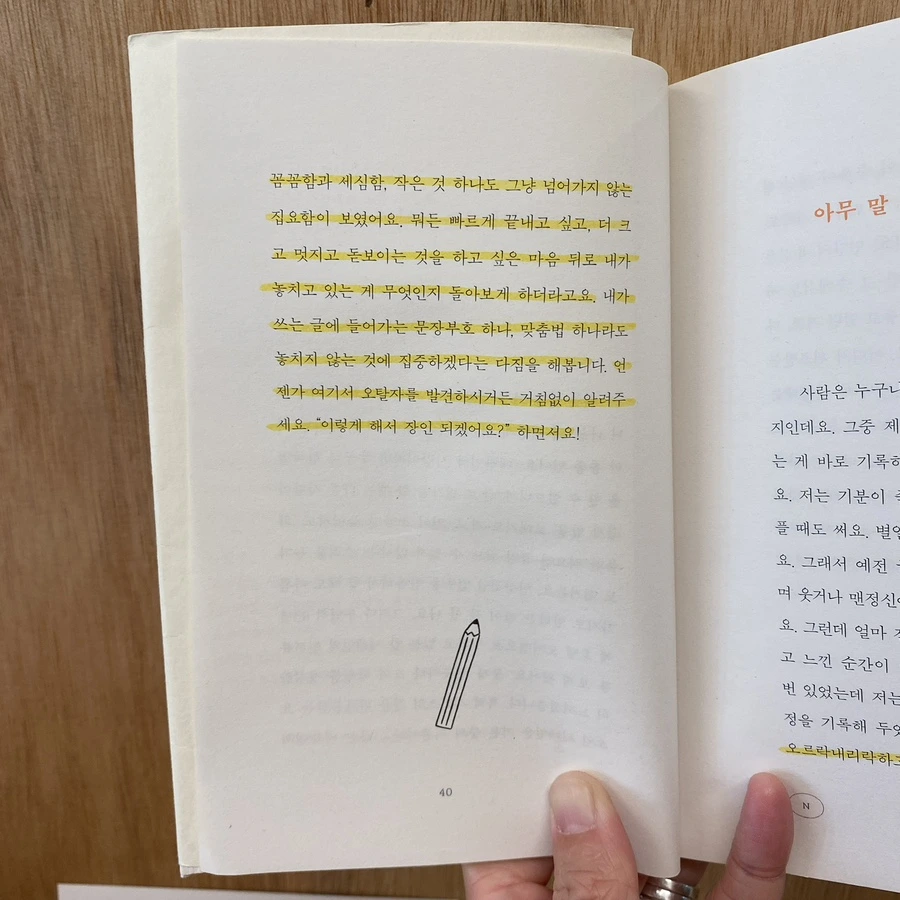 꼼꼼함과 세심함, 작은 것 하나도 그냥 넘어가지 않는
집요함이 보였어요. 뭐든 빠르게 끝내고 싶고, 더 크
고 멋지고 돋보이는 것을 하고 싶은 마음 뒤로 내가
놓치고 있는 게 무엇인지 돌아보게 하더라고요. 내가
쓰는 글에 들어가는 문장부호 하나, 맞춤법 하나라도
놓치지 않는 것에 집중하겠다는 다짐을 해봅니다. 언
젠가 여기서 오탈자를 발견하시거든 거침없이 알려주
세요. “이렇게 해서 장인 되겠어요?” 하면서요!
40
아무 말
사람은 누구나
지인데요. 그중 제
는 게 바로 기록하
요. 저는 기분이
플 때도 써요. 별일
요. 그래서 예전
며 웃거나 맨정신에
요. 그런데 얼마
고 느낀 순간이
번 있었는데 저는
정을 기록해 두었
오르락내리락하고
N